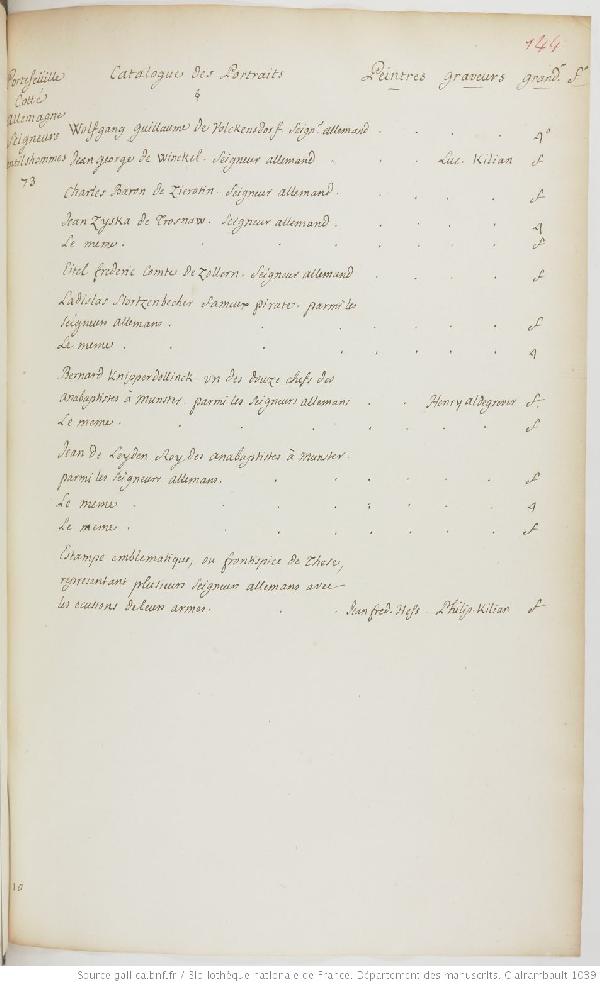 144
Portefeüille Cotté allemagne Seigneurs
73
Catalogue des Portraits Peintres graveurs grandr. fo
Wolfgang guillaume de Volckensdorf. Seignr. allemand 4o
Jean george de Winckel. Seigneur allemand Luc. Kilian f
Charles Baron de Zierotin. Seigneur allemand. f
Jean Zyska de Trosnow. Seigneur allemand. 4
Le meme. f
Eitel frederic Comte de Zollern. Seigneur allemand f
Ladislas Stortzenbecher fameux pirate. parmi les
Seigneurs allemans. f
Le meme. 4
Bernard Knipperdollinck un des douze chefs des
anabaptistes à Munster. parmi les Seigneurs allemans Henry aldegrever f
Le meme. f
Jean de Leyden Roy des anabaptistes à Munster.
parmi les Seigneurs allemans. f
Le meme 4
Le meme f
Estampe emblematique, ou frontispice de These,
representant plusieurs Seigneurs allemans avec
les ecussons de leurs armes. Jean fred. Hess Philip. Kilian f
10
Source gallica.bnf.fr / Bibliothèque nationale de France. Département des manuscrits. Clairambault 1039